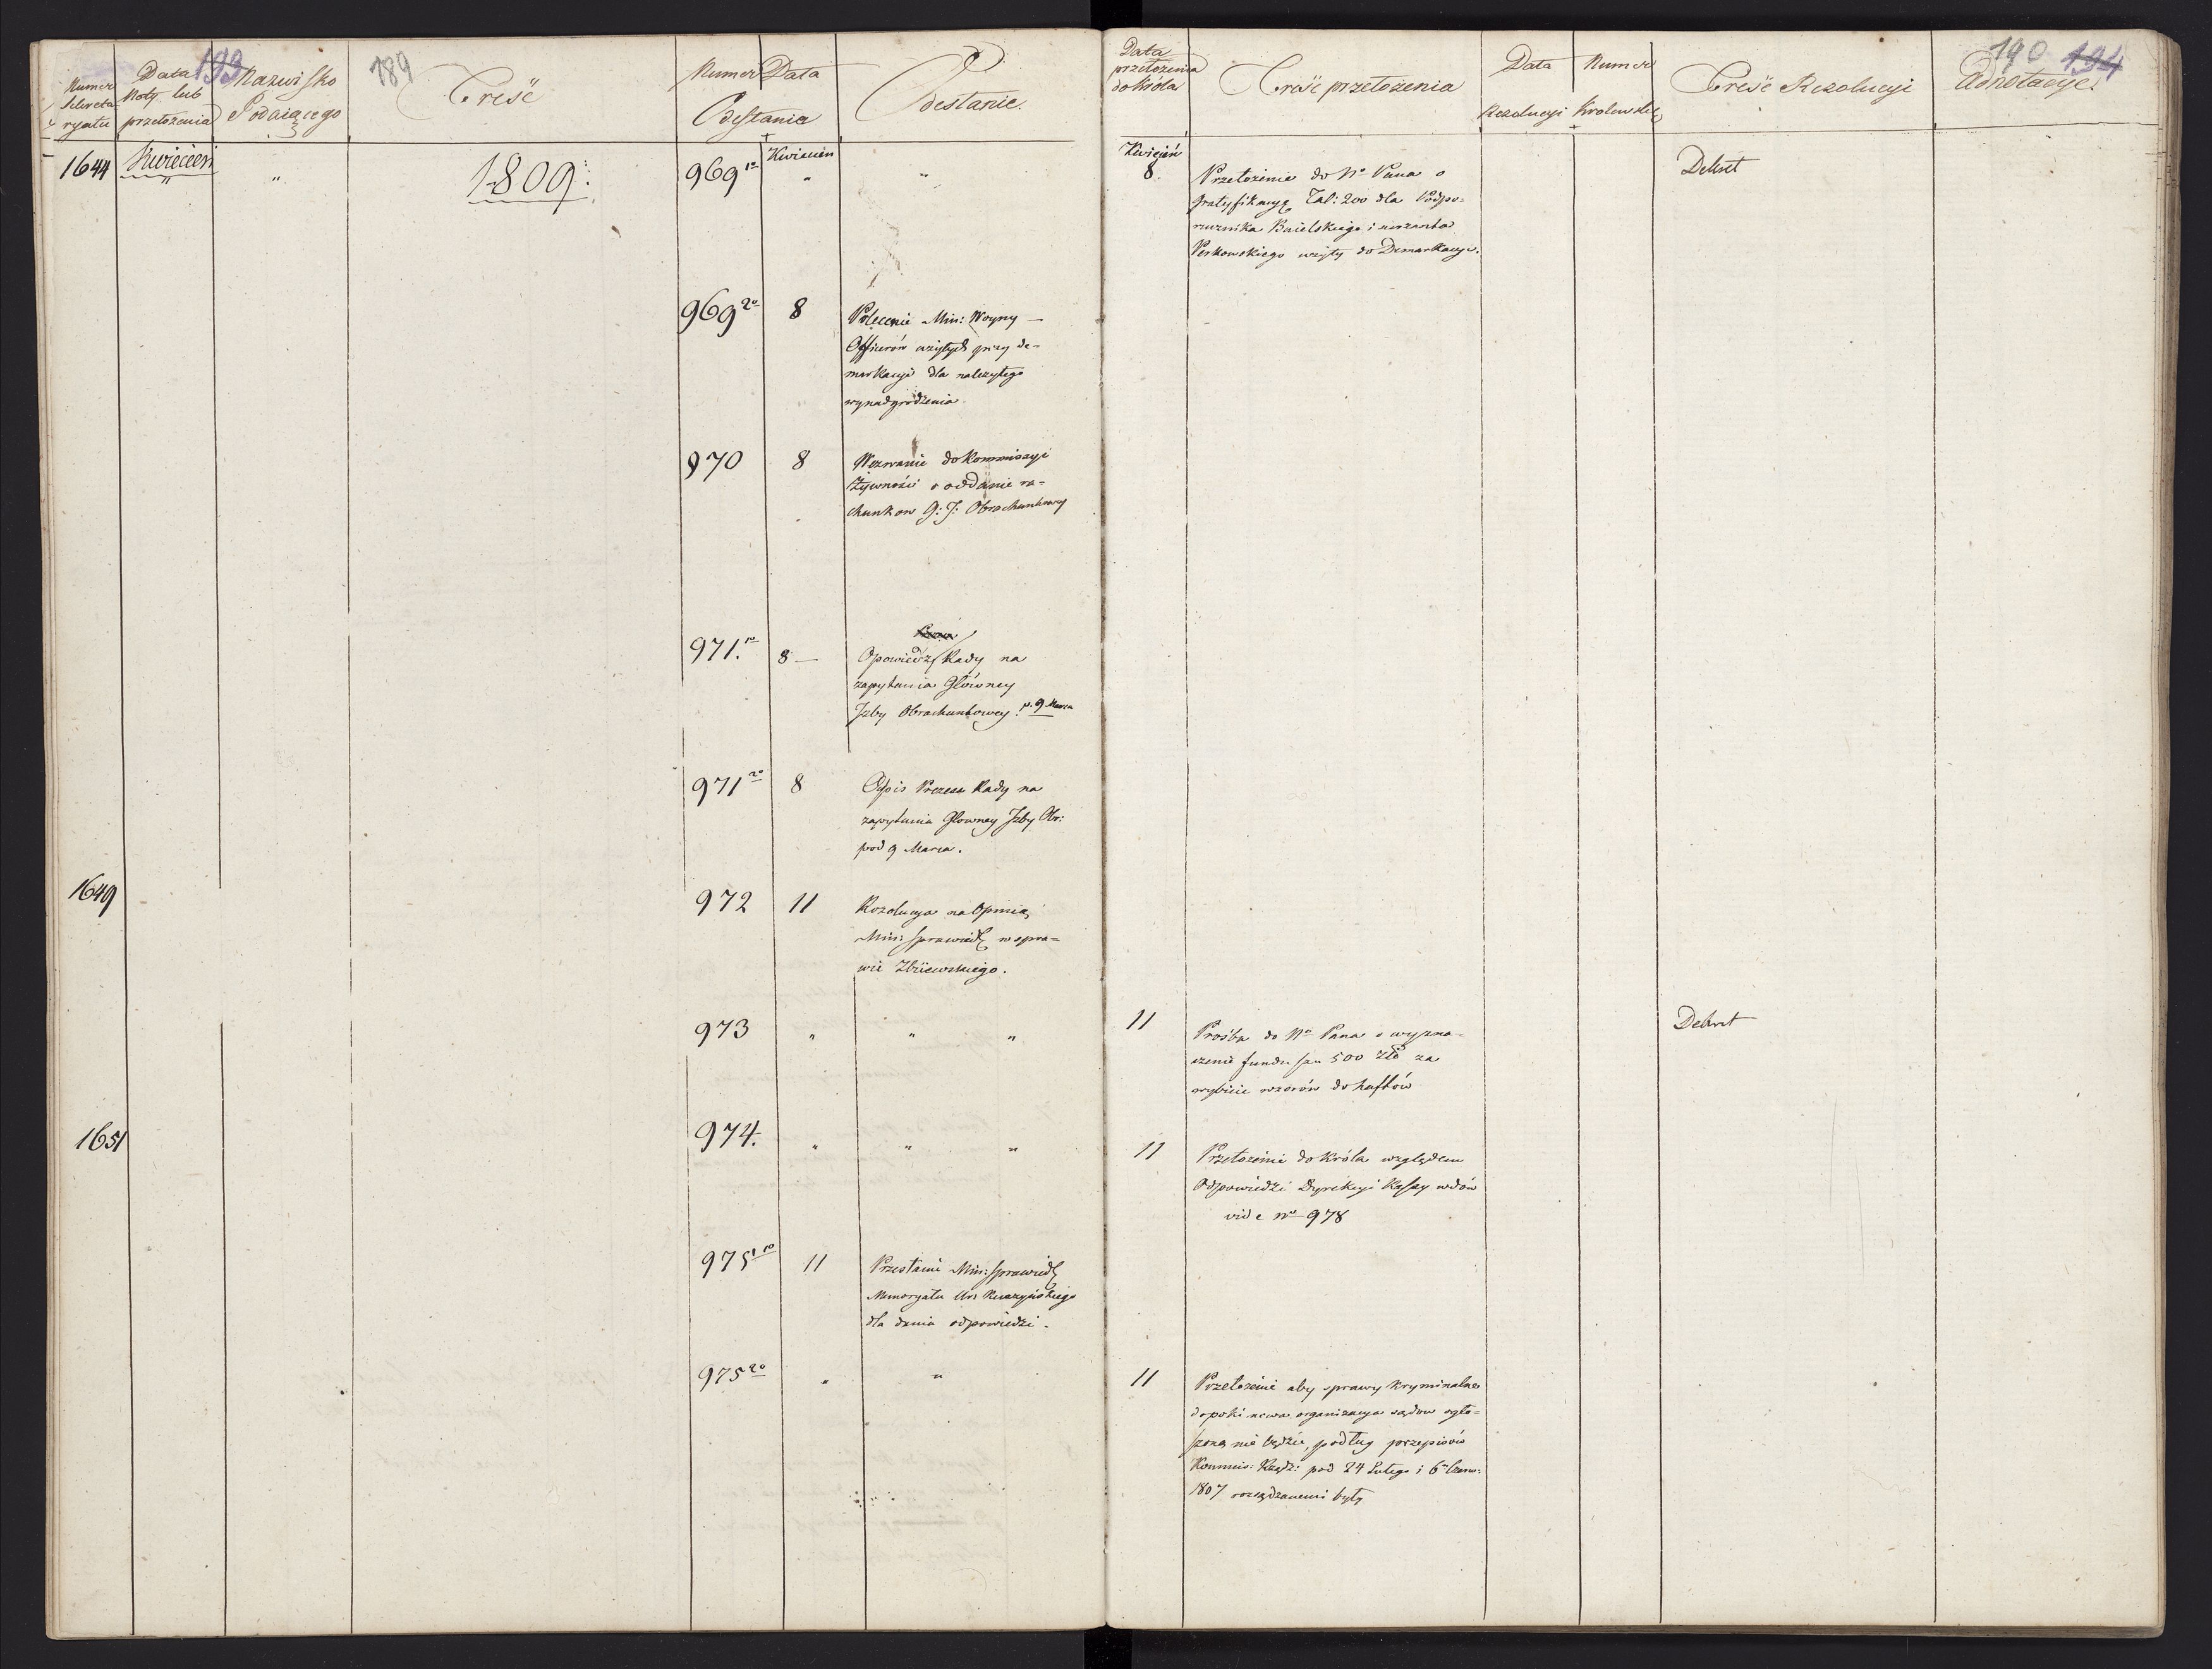 Numer
Sekreta
ryatu
Data
Noty lub
przełożenia
193
Nazwisko
Podaiącego
189
Treść
Numer Data
Odesłania
Odesłanie.
1644 Kwiecień
" "
1809.
969 1o Kwiecień
" "
969 2o 8 Polecenie Min: Woyny —
Officerów użytych przy de-
markacyi dla należytego
wynadgrodzenia
970 8 Wezwanie do Kommissyi
Żywności o oddanie ra-
chunkow G: J: Obrachunkowey
971. 1o 8 — Opowiedź Rady na
zapytania Główney
Izby Obrachunkowey p. 9 Marca
971 2o 8 Odpis Prezesa Rady na
zapytania Głowney Izby Obr:
pod 9 Marca.
1649
972 11 Rezolucya na Opinią
Min: Sprawiedl w spra-
wie Zbiewskiego.
973 " " "
1651
974. " " "
975 1o 11 Przesłanie Min: Sprawiedl
Memoryału Ur: Kuczyńskiego
dla dania odpowiedzi.
975 2o " "
Data
przełożenia
do Króla
Treść przełożenia
Data Numer
Rezolucyi Krolewskiey
Treść Rezolucyi
190 194
Adnotacye.
Kwicień
8 Przełożenie do No Pana o
gratyfikacyę Tal: 200 dla Podpo-
rucznika Bielskiego i
użyty do Demarkacyi.
Dekret
11 Prośba do No Pana o wyzna-
czenie funduszu 500 Złp za
wybicie wzorów do haftów
Dekret
11 Przełożenie do Króla względem
Odpowiedzi Dyrekcyi Kassy wdów
vide No 978
11 Przełożenie aby sprawy kryminalne
dopoki nowa organizacya sądow ogło-
szoną nie będzie, podług przepisów
Kommis: Rządz: pod 24 Lutego i 6o Czerw:
1807 rozsądzanemi były